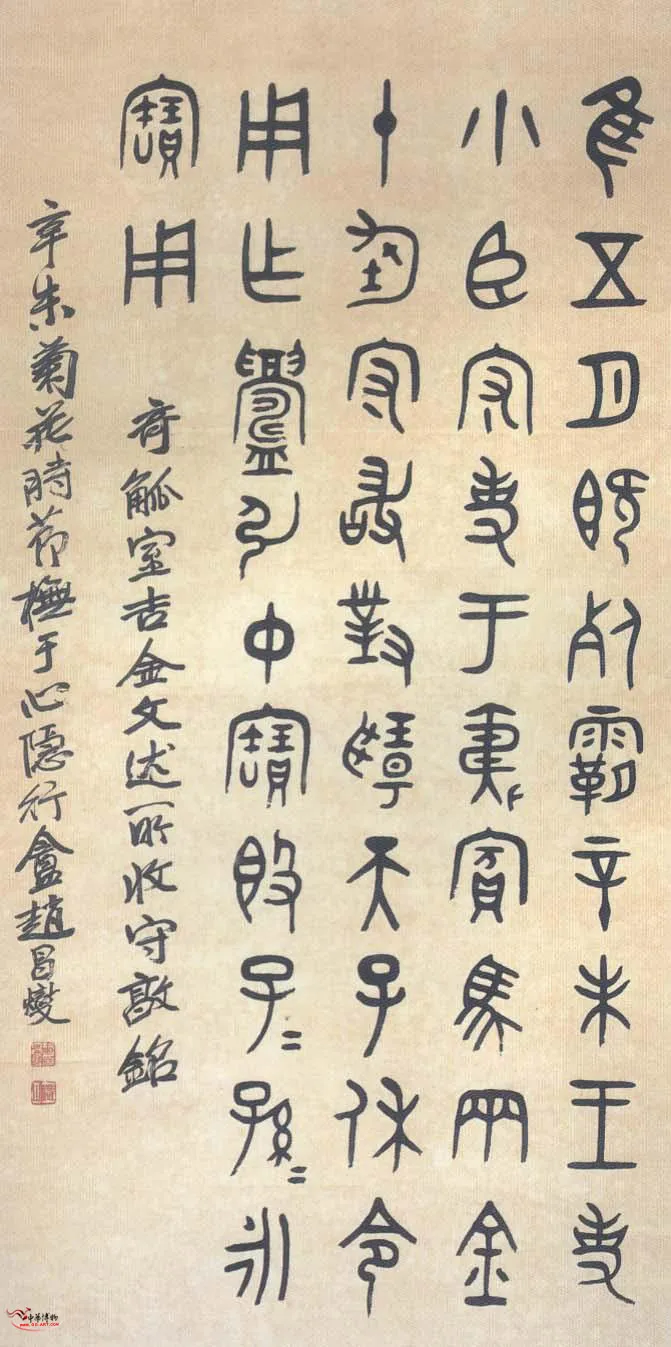 隹五月既死霸辛未王吏
小臣守吏于夷賓馬兩金
十鈞守敢對揚天子休令
用乍鑄引中寶𣪘子=孫=永
寶用
奇觚室吉金文述所收守敦銘
辛未菊花時節橅于心隱行盦趙昌燮
中華博物